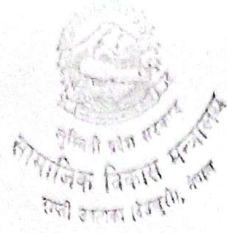 लुम्बिनी प्रदेश सरकार
सामाजिक विकास मन्त्रालय
राप्ती उपत्यका (देउखुरी), नेपाल